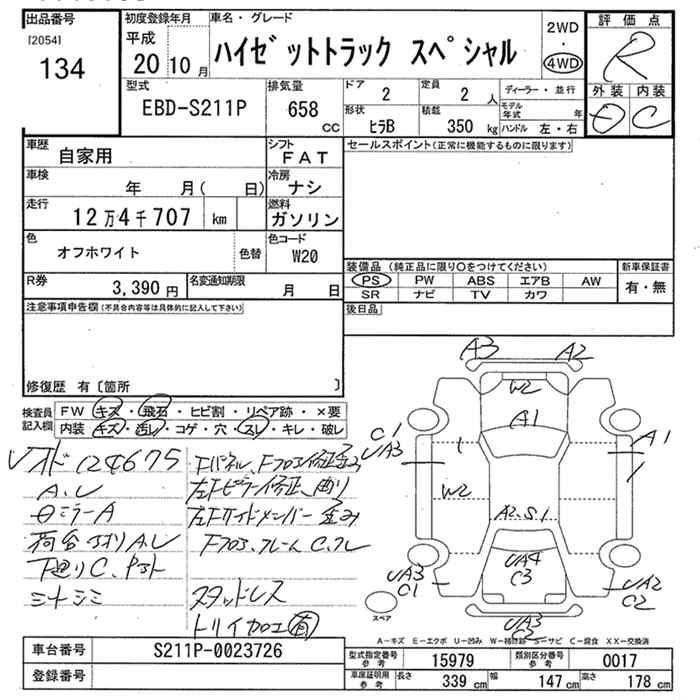 出品番号
[2054]
134
初度登録年月
平成
20 10 月
車名・グレード
ハイゼットトラック スペシャル
2WD
・
4WD
評価点
R
外装 内装
C
型式
EBD-S211P
排気量
658
CC
ドア
2
定員
2 人
形状
ヒラB
積載
350 kg
ディーラー・並行
モデル年式 年
ハンドル 左・右
車歴
自家用
シフト
FAT
車検
年 月( 日)
冷房
ナシ
走行
12万4千707 km
燃料
ガソリン
色
オフホワイト
色替
色コード
W20
R券
3,390 円
名変通知期限
月 日
セールスポイント(正常に機能するものに限ります)
装備品 (純正品に限り○をつけてください)
PS PW ABS エアB AW
SR ナビ TV カワ
新車保証書
有・無
後日品
注意事項申告欄(不具合内容等は具体的に記入して下さい)
修復歴 有〔箇所 〕
検査員記入欄
FW キズ・飛石・ヒビ割・リペア跡・×要
内装 キズ・汚レ・コゲ・穴・スレ・キレ・破レ
A.C
ミラーA
荷台 A.U
下廻りC.
スタッドレス
トリイ加工 有
A3 A2
W2
A1
C1
UA3
A1
W2
A2.S1
UA4
C3
UA3
C1
UA2
C2
UA3
C2
スペア
A-キズ E-エクボ U-凹み W-補修跡 S-サビ C-腐食 XX-交換済
車台番号
S211P-0023726
登録番号
型式指定番号
参考
15979
類別区分番号
参考
0017
車庫証明用
参考
長さ
339 cm
幅
147 cm
高さ
178 cm